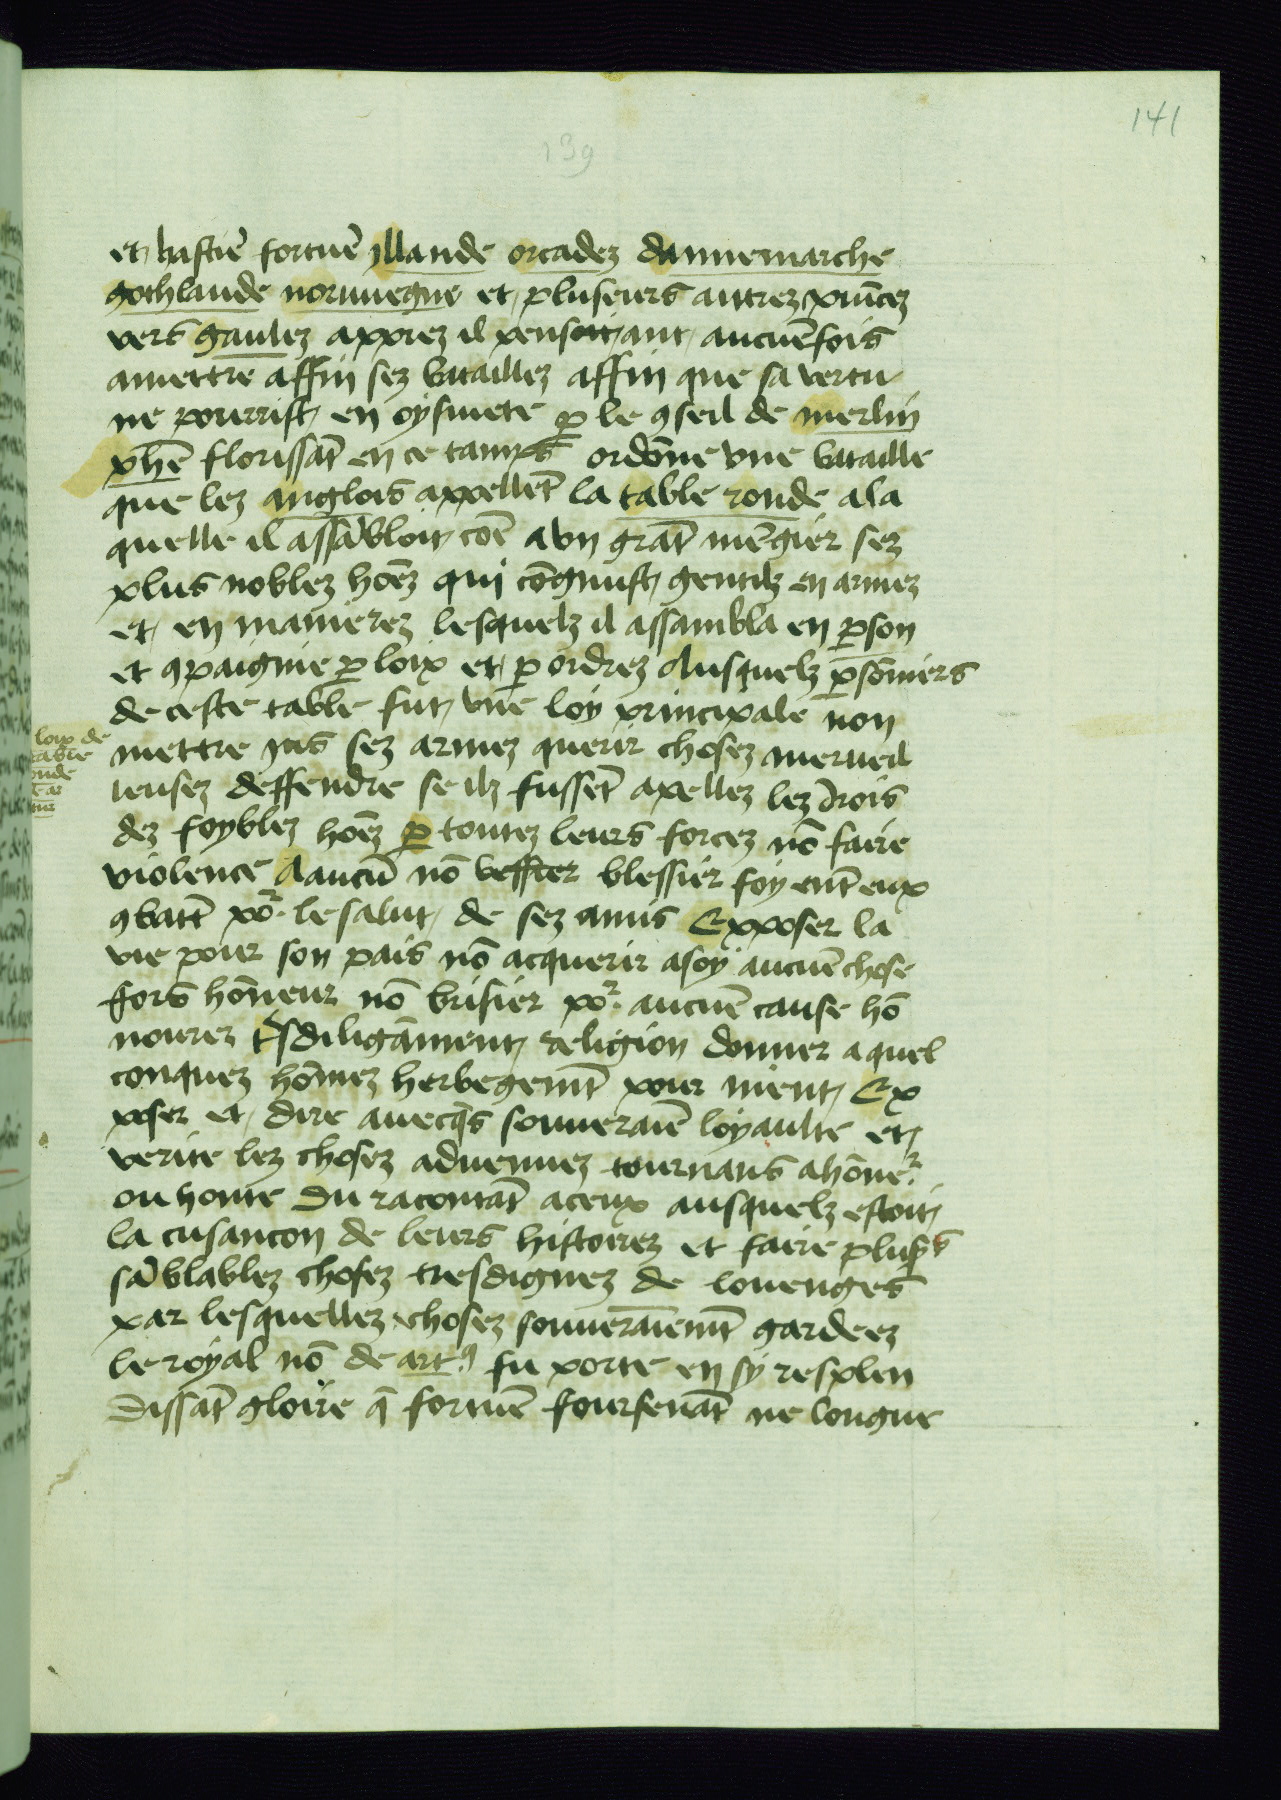 141
139
et hastiē fortuē jllande orcadez dannemarche
gothlande noruuegue et pluseurs autrez puīcez
vers gaulez apprez il pensoit ant aucuē fois
amettre affin sez bataillez affin que sa vertu
ne pourrist en oysiuete ꝑ le ꝯseil de merlin
ꝓhē florissāt en ce tamps ordōne vne bataille
que lez anglois appellēt la table ronde a la
quelle il assābloit cōe a vn grāt mēgier sez
plus noblez hōez qui cōgnust gentilz en armez
et en manierez lesquelz il assambla en ꝑson
et ꝯpaignie ꝑ loix et ꝑ ordrez Ausquelz ꝑsōniers
de ceste table fut vne loy principale non
mettre jus sez armez querir chosez merueil
leusez deffendre se ilz fussēt apellez lez drois
dez foyblez hōez ꝑ toutez leurs forcez nō faire
violence A aucū nō beffier blessier foy ent̄ eux
ꝯbatt̄ po͛. le salut de sez amis Exposer la
vie pour son pais nō acquerir a soy aucuē chose
fors hōneur nō brisier po͛. aucuē cause hō
nourez t͛sdiligāment religion donner a quel
conquez hōmez herbegemt̄ pour nient Ex
poser et dire auecq̄s souueraiē loyaulte et
verite lez chosez aduenuez tournans a hōne͛.
ou honte du racontāt a ceux ausquelz estoit
la cusancon de leurs histoirez et faire plus͛s
sāblablez chosez tresdignez de louenges
par lesquellez chosez souueraiemt̄ gardeez
le royal nō de art.9 fu porte en sy resplen
dissāt gloire q̄ fortuē fourseuāt ne longue
loix de
table
onde